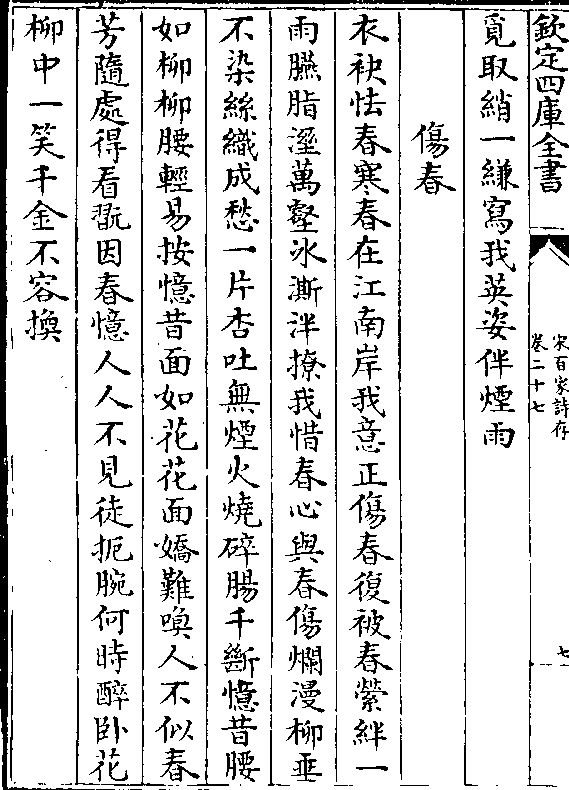 欽定四庫全書
宋百家詩存
卷二十七
七
覓取綃一縑寫我英姿伴煙雨
傷春
衣袂怯春寒春在江南岸我意正傷春復被春縈絆一
雨臙脂溼萬壑冰澌泮撩我惜春心與春傷爛漫柳垂
不染絲織成愁一片杏吐無煙火燒碎腸千斷憶昔腰
如柳柳腰輕易按憶昔面如花花面嬌難喚人不似春
芳隨處得看翫因春憶人人不見徒扼腕何時醉卧花
柳中一笑千金不容換